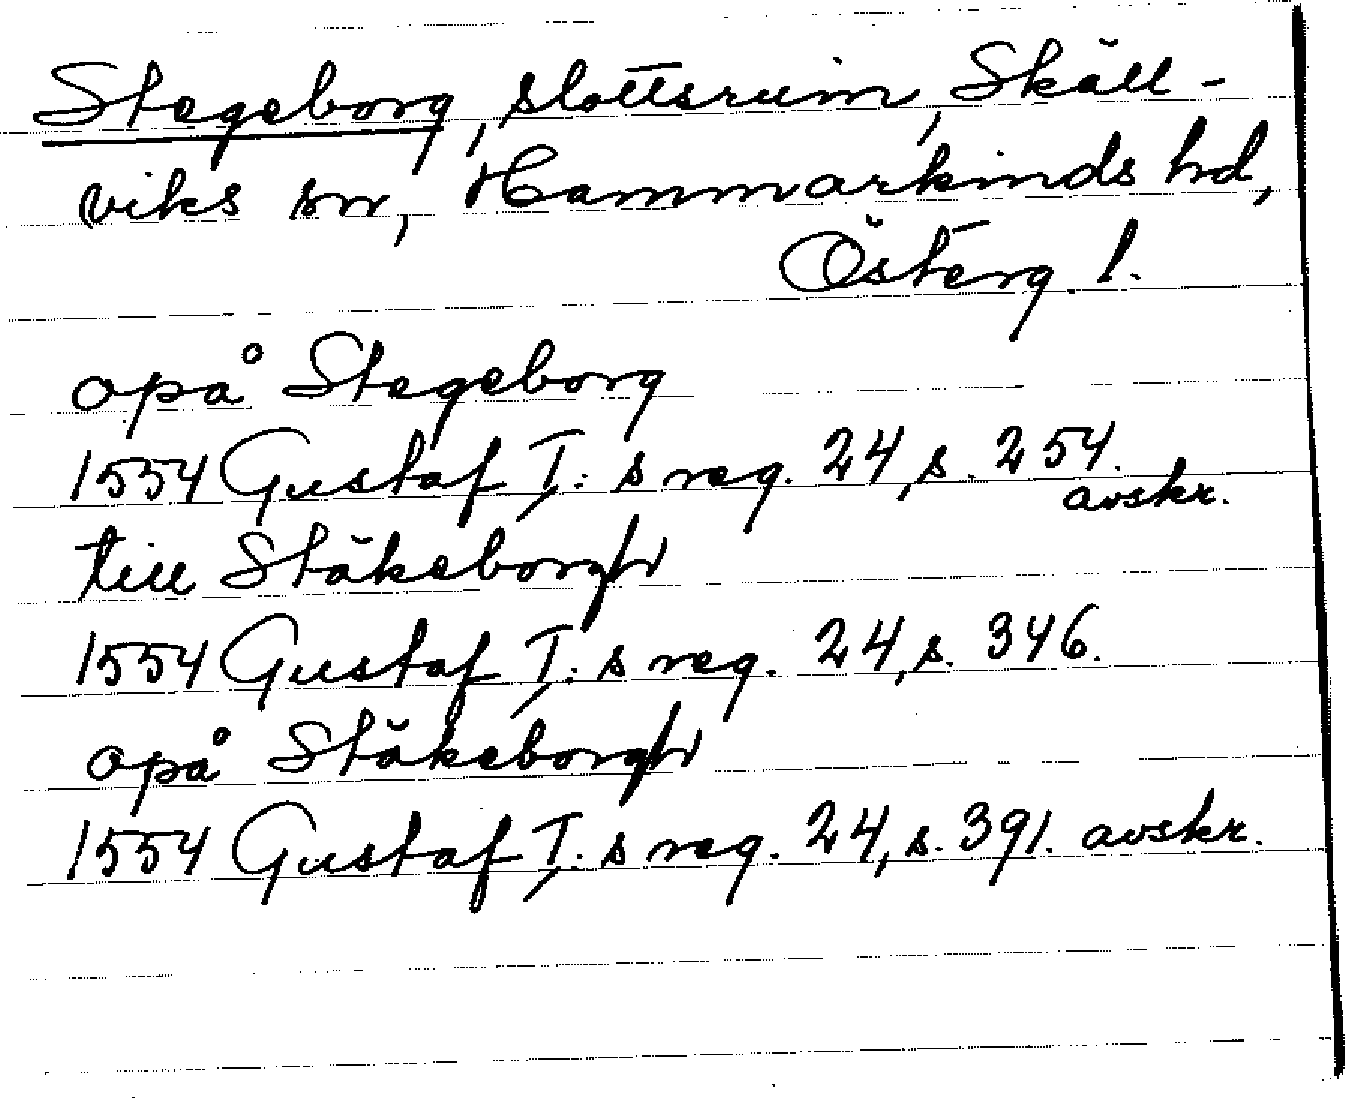 Stegeborg, slottsruin, Skäll-
viks sn, Hammarkinds hd,
Österg. l.
opå Stegeborg
1554 Gustaf I:s reg. 24, s. 254.
avskr.
till Stäkeborgh
1554 Gustaf I:s reg. 24, s. 346.
opå Stäkeborgh
1554 Gustaf I:s reg. 24, s. 391. avskr.